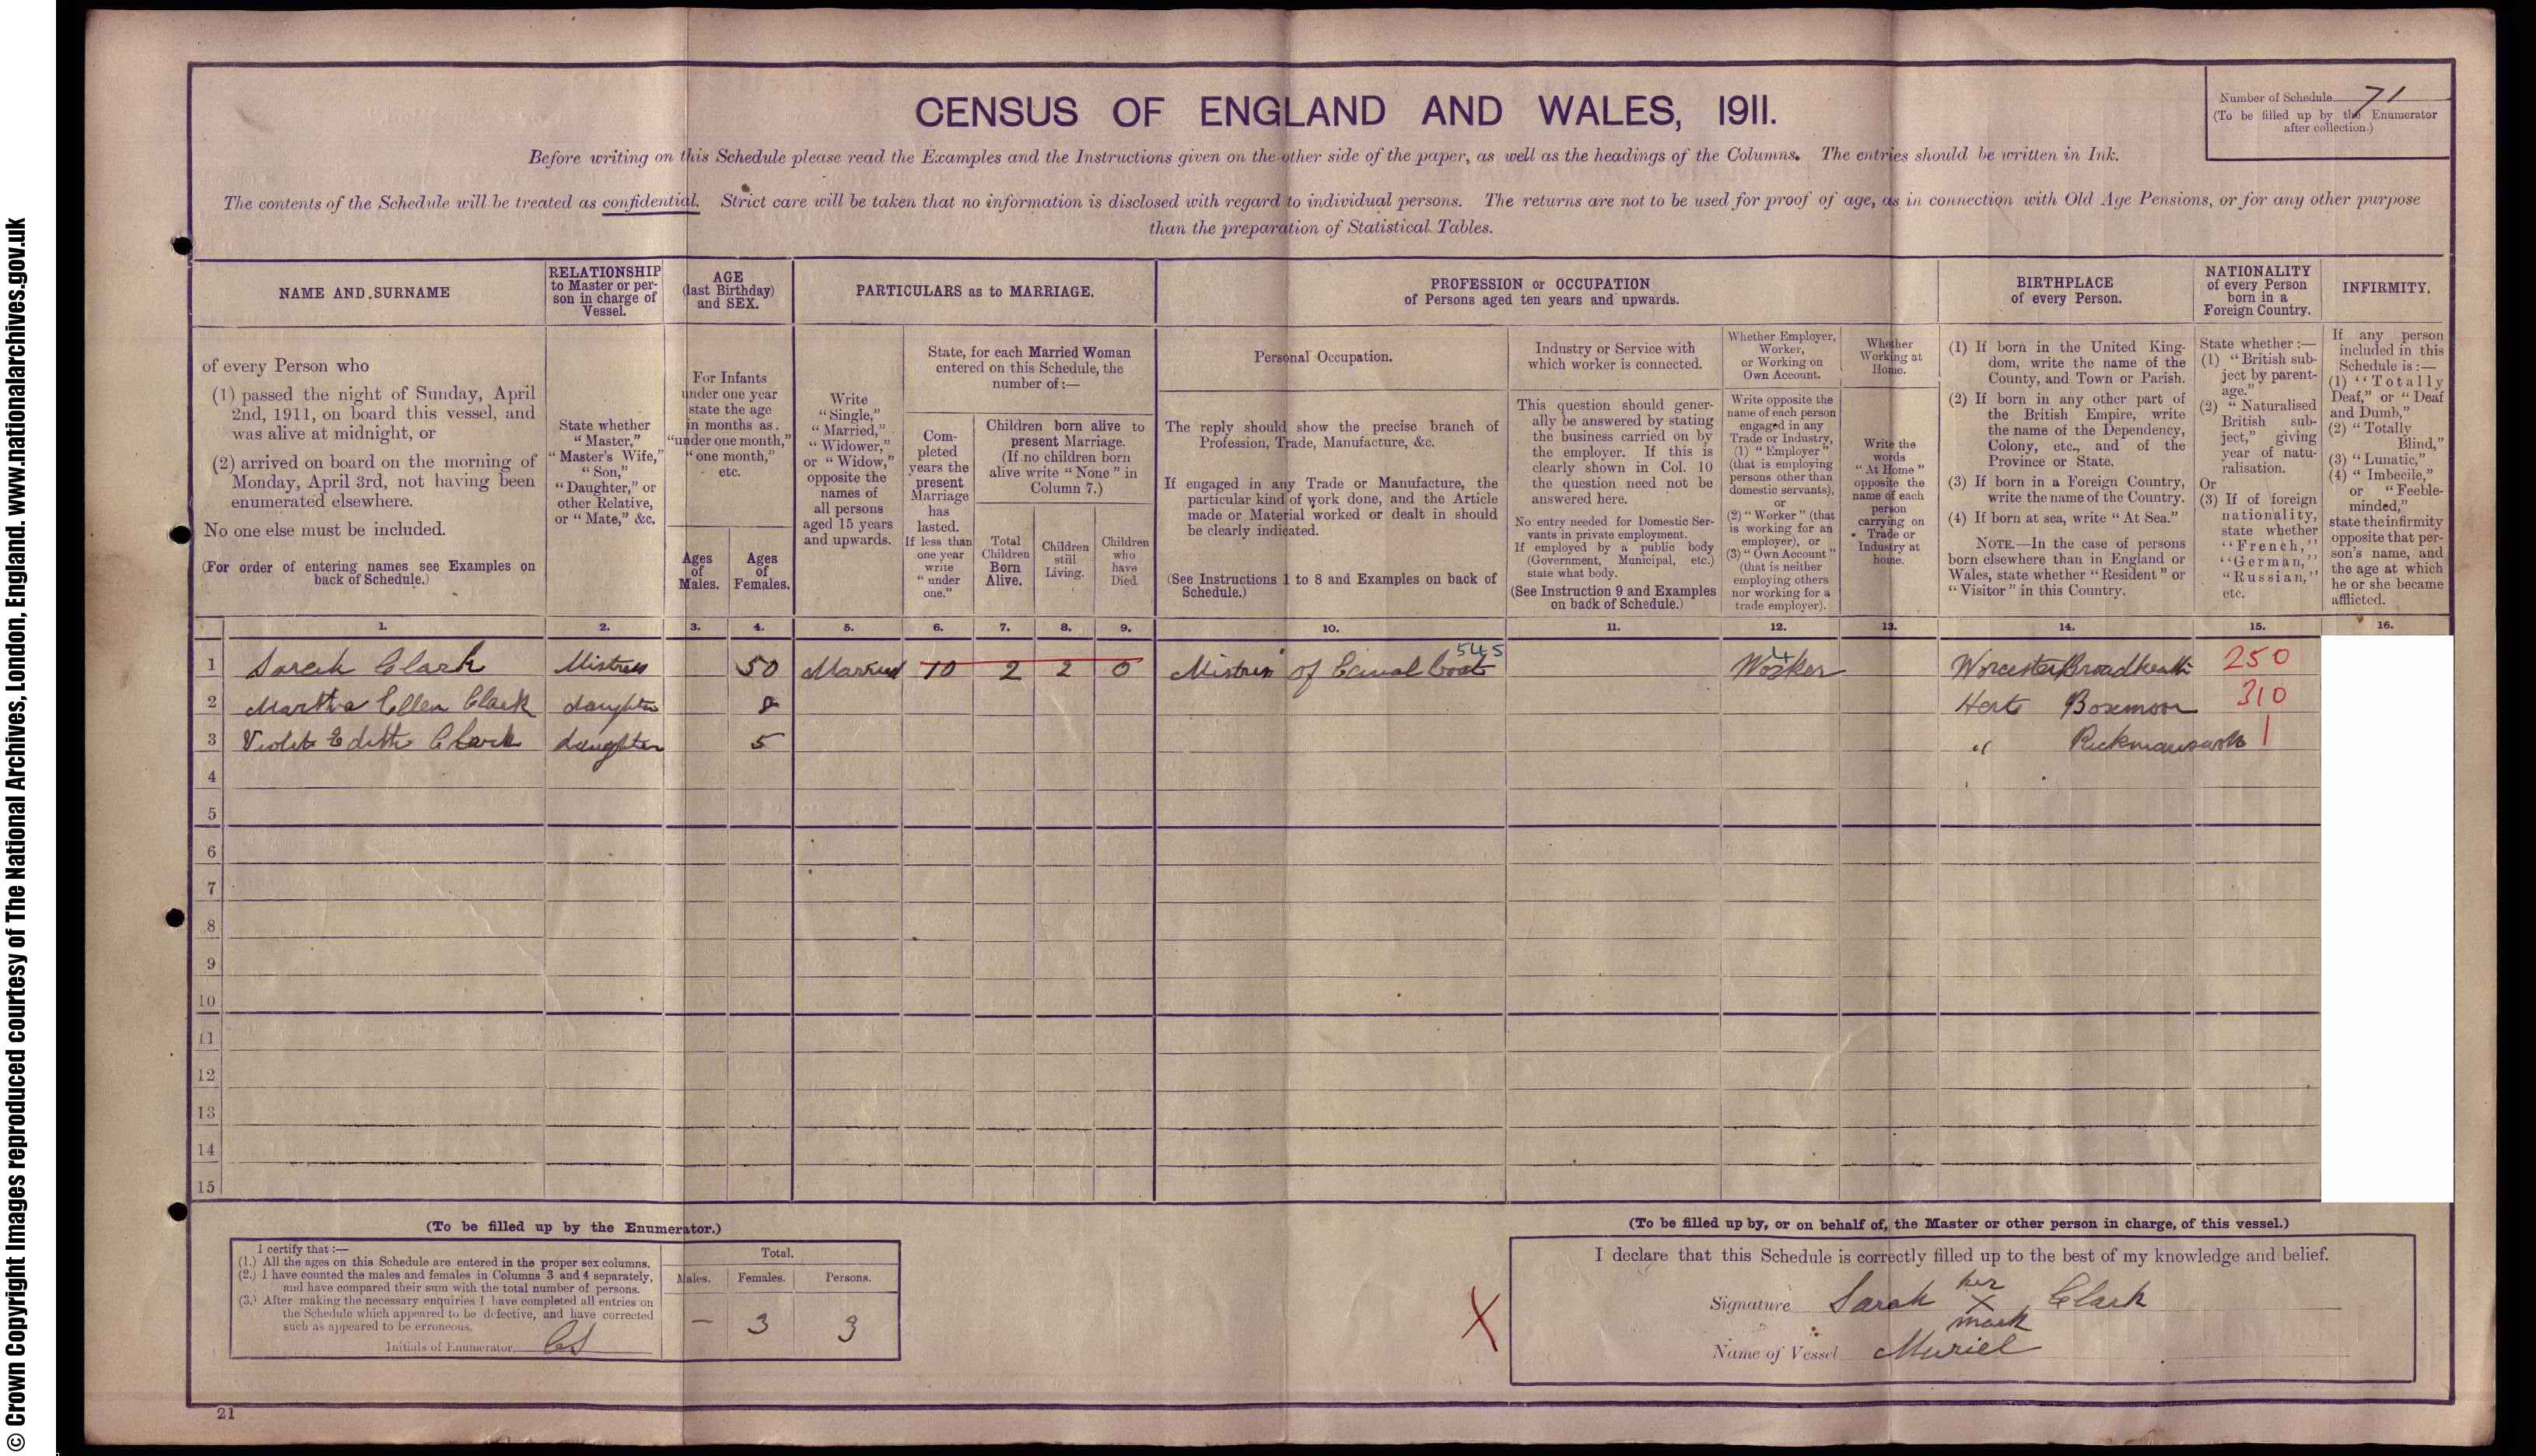 © Crown Copyright Images reproduced courtesy of The National Archives, London, England. www.nationalarchives.gov.uk
CENSUS OF ENGLAND AND WALES, 1911.
Number of Schedule 71
(To be filled up by the Enumerator
after collection.)
Before writing on this Schedule please read the Examples and the Instructions given on the other side of the paper, as well as the headings of the Columns. The entries should be written in Ink.
The contents of the Schedule will be treated as confidential. Strict care will be taken that no information is disclosed with regard to individual persons. The returns are not to be used for proof of age, as in connection with Old Age Pensions, or for any other purpose
than the preparation of Statistical Tables.
NAME AND SURNAME
RELATIONSHIP
to Master or per-
son in charge of
Vessel.
AGE
(last Birthday)
and SEX.
PARTICULARS as to MARRIAGE.
PROFESSION or OCCUPATION
of Persons aged ten years and upwards.
BIRTHPLACE
of every Person.
NATIONALITY
of every Person
born in a
Foreign Country.
INFIRMITY.
of every Person who
(1) passed the night of Sunday, April
2nd, 1911, on board this vessel, and
was alive at midnight, or
(2) arrived on board on the morning of
Monday, April 3rd, not having been
enumerated elsewhere.
No one else must be included.
(For order of entering names see Examples on
back of Schedule.)
State whether
"Master,"
"Master's Wife,"
"Son,"
"Daughter," or
other Relative,
or "Mate," &c.
For Infants
under one year
state the age
in months as
"under one month,"
"one month,"
etc.
Ages
of
Males.
Ages
of
Females.
Write
"Single,"
"Married,"
"Widower,"
or "Widow,"
opposite the
names of
all persons
aged 15 years
and upwards.
State, for each Married Woman
entered on this Schedule, the
number of:—
Com-
pleted
years the
present
Marriage
has
lasted.
If less than
one year
write
"under
one."
Children born alive to
present Marriage.
(If no children born
alive write "None" in
Column 7.)
Total
Children
Born
Alive.
Children
still
Living.
Children
who
have
Died.
Personal Occupation.
The reply should show the precise branch of
Profession, Trade, Manufacture, &c.
If engaged in any Trade or Manufacture, the
particular kind of work done, and the Article
made or Material worked or dealt in should
be clearly indicated.
(See Instructions 1 to 8 and Examples on back of
Schedule.)
Industry or Service with
which worker is connected.
This question should gener-
ally be answered by stating
the business carried on by
the employer. If this is
clearly shown in Col. 10
the question need not be
answered here.
No entry needed for Domestic Ser-
vants in private employment.
If employed by a public body
(Government, Municipal, etc.)
state what body.
(See Instruction 9 and Examples
on back of Schedule.)
Whether Employer,
Worker,
or Working on
Own Account.
Write opposite the
name of each person
engaged in any
Trade or Industry,
(1) "Employer"
(that is employing
persons other than
domestic servants),
or
(2) "Worker" (that
is working for an
employer), or
(3) "Own Account"
(that is neither
employing others
nor working for a
trade employer).
Whether
Working at
Home.
Write the
words
"At Home"
opposite the
name of each
person
carrying on
Trade or
Industry at
home.
(1) If born in the United King-
dom, write the name of the
County, and Town or Parish.
(2) If born in any other part of
the British Empire, write
the name of the Dependency,
Colony, etc., and of the
Province or State.
(3) If born in a Foreign Country,
write the name of the Country.
(4) If born at sea, write "At Sea."
NOTE.—In the case of persons
born elsewhere than in England or
Wales, state whether "Resident" or
"Visitor" in this Country.
State whether:—
(1) "British sub-
ject by parent-
age."
(2) "Naturalised
British sub-
ject," giving
year of natu-
ralisation.
Or
(3) If of foreign
nationality,
state whether
"French,"
"German,"
"Russian,"
etc.
If any person
included in this
Schedule is:—
(1) "Totally
Deaf," or "Deaf
and Dumb,"
(2) "Totally
Blind,"
(3) "Lunatic,"
(4) "Imbecile,"
or "Feeble-
minded,"
state the infirmity
opposite that per-
son's name, and
the age at which
he or she became
afflicted.
1. 2. 3. 4. 5. 6. 7. 8. 9. 10. 11. 12. 13. 14. 15. 16.
1 Sarah Clark Mistress 50 Married 10 2 2 0 Mistress of Canal boat 545 Worker 4 Worcester Broadheath 250
2 Martha Ellen Clark daughter 8 Herts Boxmoor 310
3 Violet Edith Clark daughter 5 " Rickmansworth 1
4
5
6
7
8
9
10
11
12
13
14
15
(To be filled up by the Enumerator.)
I certify that:—
(1.) All the ages on this Schedule are entered in the proper sex columns.
(2.) I have counted the males and females in Columns 3 and 4 separately,
and have compared their sum with the total number of persons.
(3.) After making the necessary enquiries I have completed all entries on
the Schedule which appeared to be defective, and have corrected
such as appeared to be erroneous.
Initials of Enumerator
Total.
Males. Females. Persons.
— 3 3
(To be filled up by, or on behalf of, the Master or other person in charge, of this vessel.)
I declare that this Schedule is correctly filled up to the best of my knowledge and belief.
her
Signature Sarah X Clark
mark
Name of Vessel Muriel
X
21